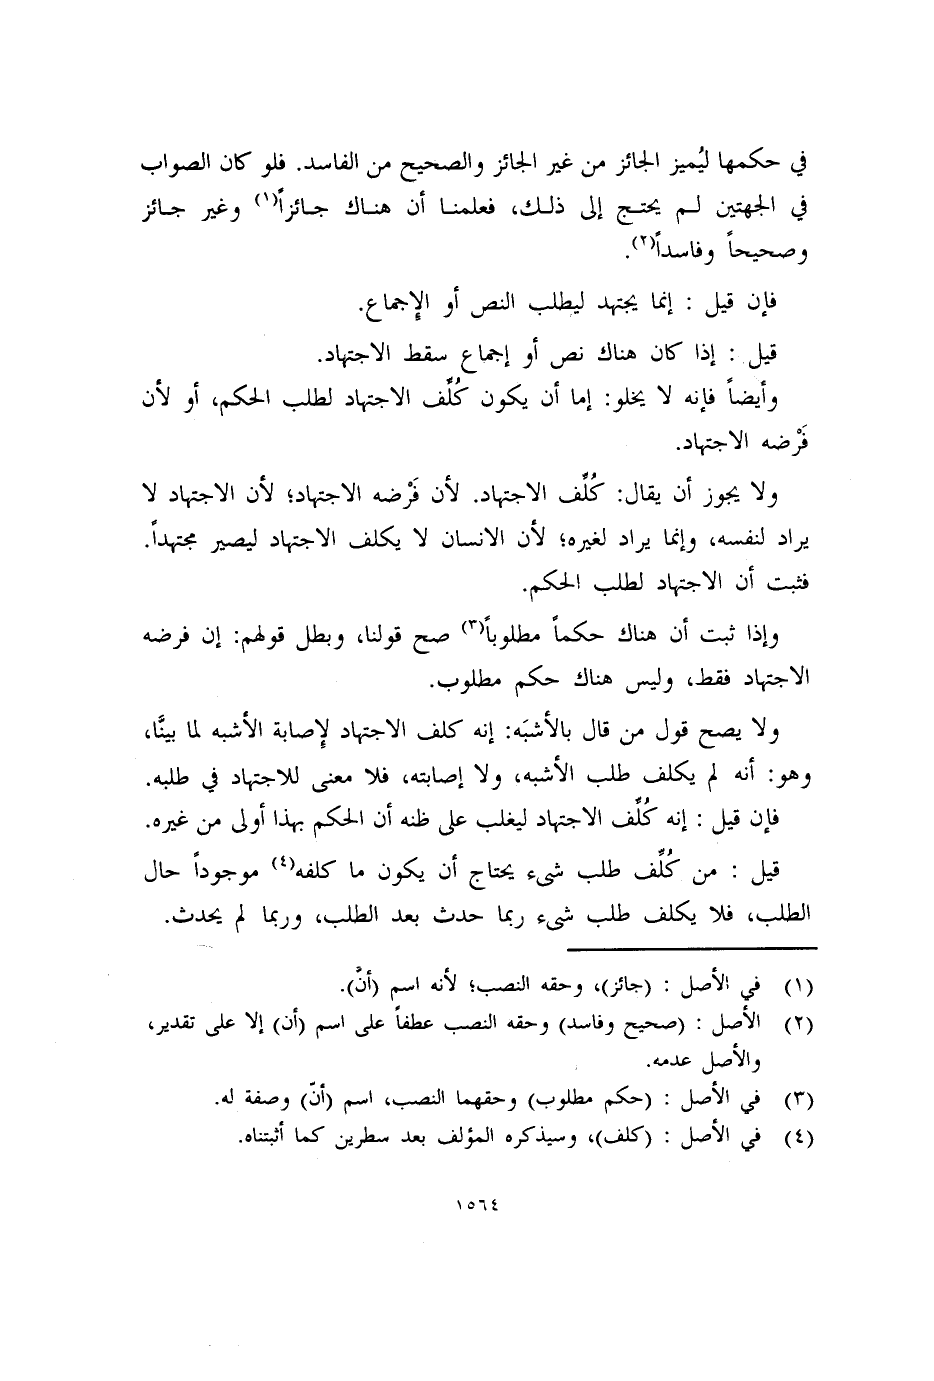 في حكمها ليُميز الجائز من غير الجائز والصحيح من الفاسد. فلو كان الصواب
في الجهتين لـم يحتـج إلى ذلـك، فعلمنـا أن هنـاك جـائزاً(١) وغير جـائز
وصحيحاً وفاسداً(٢).
فإن قيل : إنما يجتهد ليطلب النص أو الإِجماع.
قيل : إذا كان هناك نص أو إجماع سقط الاجتهاد.
وأيضاً فإنه لا يخلو: إما أن يكون كُلِّف الاجتهاد لطلب الحكم، أو لأن
فَرْضه الاجتهاد.
ولا يجوز أن يقال: كُلِّف الاجتهاد. لأن فَرْضه الاجتهاد؛ لأن الاجتهاد لا
يراد لنفسه، وإنما يراد لغيره؛ لأن الانسان لا يكلف الاجتهاد ليصير مجتهداً.
فثبت أن الاجتهاد لطلب الحكم.
وإذا ثبت أن هناك حكماً مطلوباً(٣) صح قولنا، وبطل قولهم: إن فرضه
الاجتهاد فقط، وليس هناك حكم مطلوب.
ولا يصح قول من قال بالأشبَه: إنه كلف الاجتهاد لإِصابة الأشبه لما بينَّا،
وهو: أنه لم يكلف طلب الأشبه، ولا إصابته، فلا معنى للاجتهاد في طلبه.
فإن قيل : إنه كُلِّف الاجتهاد ليغلب على ظنه أن الحكم بهذا أولى من غيره.
قيل : من كُلِّف طلب شيء يحتاج أن يكون ما كلفه(٤) موجوداً حال
الطلب، فلا يكلف طلب شيء ربما حدث بعد الطلب، وربما لم يحدث.
(١) في الأصل : (جائز)، وحقه النصب؛ لأنه اسم (أنَّ).
(٢) الأصل : (صحيح وفاسد) وحقه النصب عطفاً على اسم (أن) إلا على تقدير،
والأصل عدمه.
(٣) في الأصل : (حكم مطلوب) وحقهما النصب، اسم (أنّ) وصفة له.
(٤) في الأصل : (كلف)، وسيذكره المؤلف بعد سطرين كما أثبتناه.
١٥٦٤